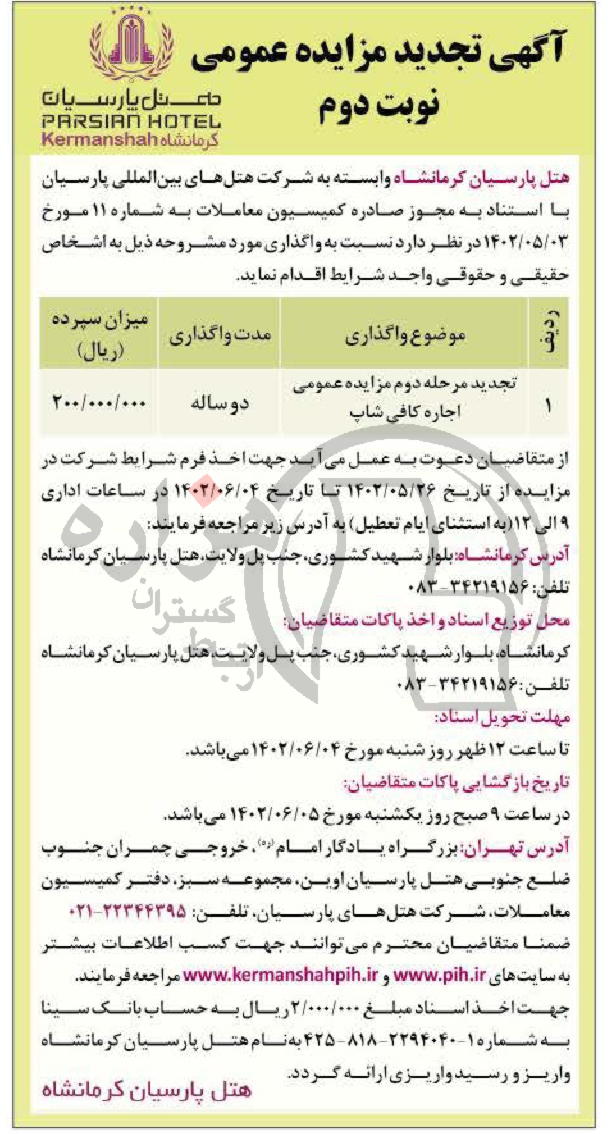 آگهی تجدید مزایده عمومی
نوبت دوم
هتل پارسیان
PARSIAN HOTEL
کرمانشاه Kermanshah
هتل پارسیان کرمانشاه وابسته به شرکت هتل‌های بین‌المللی پارسیان
با استناد به مجوز صادره کمیسیون معاملات به شماره ۱۱ مورخ
۱۴۰۲/۰۵/۰۳ در نظر دارد نسبت به واگذاری مورد مشروحه ذیل به اشخاص
حقیقی و حقوقی واجد شرایط اقدام نماید.
ردیف موضوع واگذاری مدت واگذاری میزان سپرده (ریال)
۱ تجدید مرحله دوم مزایده عمومی اجاره کافی شاپ دو ساله ۲۰۰/۰۰۰/۰۰۰
از متقاضیان دعوت به عمل می آید جهت اخذ فرم شرایط شرکت در
مزایده از تاریخ ۱۴۰۲/۰۵/۲۶ تا تاریخ ۱۴۰۲/۰۶/۰۴ در ساعات اداری
۹ الی ۱۲ (به استثنای ایام تعطیل) به آدرس زیر مراجعه فرمایند:
آدرس کرمانشاه: بلوار شهید کشوری، جنب پل ولایت، هتل پارسیان کرمانشاه
تلفن: ۳۴۲۱۹۱۵۶-۰۸۳
محل توزیع اسناد و اخذ پاکات متقاضیان:
کرمانشاه، بلوار شهید کشوری، جنب پل ولایت، هتل پارسیان کرمانشاه
تلفن: ۳۴۲۱۹۱۵۶-۰۸۳
مهلت تحویل اسناد:
تا ساعت ۱۲ ظهر روز شنبه مورخ ۱۴۰۲/۰۶/۰۴ می‌باشد.
تاریخ بازگشایی پاکات متقاضیان:
در ساعت ۹ صبح روز یکشنبه مورخ ۱۴۰۲/۰۶/۰۵ می‌باشد.
آدرس تهران: بزرگراه یادگار امام (ره)، خروجی چمران جنوب
ضلع جنوبی هتل پارسیان اوین، مجموعه سبز، دفتر کمیسیون
معاملات، شرکت هتل‌های پارسیان، تلفن: ۲۲۳۴۴۳۹۵-۰۲۱
ضمنا متقاضیان محترم می‌توانند جهت کسب اطلاعات بیشتر
به سایت‌های www.pih.ir و www.kermanshahpih.ir مراجعه فرمایند.
جهت اخذ اسناد مبلغ ۲/۰۰۰/۰۰۰ ریال به حساب بانک سینا
به شماره ۱-۲۲۹۴۰۴۰-۸۱۸-۴۲۵ به نام هتل پارسیان کرمانشاه
واریز و رسید واریزی ارائه گردد.
هتل پارسیان کرمانشاه
هزاره
گستران
ارتباط